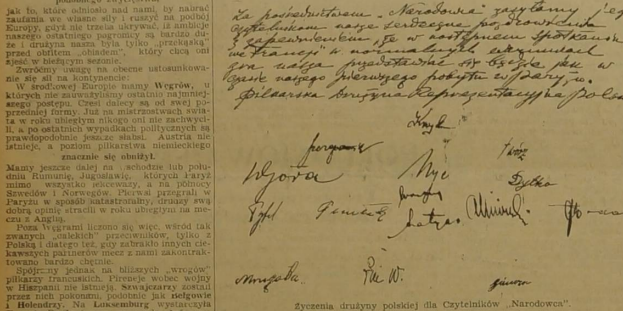 jak to, które odniosło nad nami, by nabrać
zaufania we własne siły i ruszyć na podbój
Europy, gdy nie trzeba ukrywać, iż ambicje
naszego ostatniego pogromcy są bardzo du-
że i drużyna nasza była tylko „przekąską"
przed obfitem „obiadem", który chcą oni
zjeść w bieżącym sezonie.
Zwróćmy uwagę na obecne ustosunkowa-
nie się sił na kontynencie:
W środkowej Europie mamy Węgrów, u
których nie zauważyliśmy ostatnio najmniej-
szego postępu. Czesi dalecy są od swej po-
przedniej formy. Już na mistrzostwach świa-
ta w roku ubiegłym nikogo oni nie zachwyci-
li, a po ostatnich wypadkach politycznych są
prawdopodobnie jeszcze słabsi. Austria nie
istnieje, a poziom piłkarstwa niemieckiego
znacznie się obniżył.
Mamy jeszcze dalej na schodzie lub połu-
dniu Rumunię, Jugosławię, których Paryż
mimo wszystko lekceważy, a na północy
Szwedów i Norwegów. Pierwsi przegrali w
Paryżu w sposób katastrofalny, drudzy swą
dobrą opinię stracili w roku ubiegłym na me-
czu z Anglią.
Poza Węgrami liczono się więc, wśród tak
zwanych „dalekich" przeciwników, tylko z
Polską i dlatego też, gdy zabrakło innych cie-
kawszych partnerów mecz z nami zakontrak-
towano bardzo chętnie.
Spójrzmy jednak na bliższych „wrogów"
piłkarzy francuskich. Pireneje wobec wojny
w Hiszpanii nie istnieją. Szwajcarzy zostali
przez nich pokonani, podobnie jak Belgowie
i Holendrzy. Na Luksemburg wystarczyła
Za pośrednictwem „Narodowca" zasyłamy jego
czytelnikom nasze serdeczne pozdrowienia
z zapewnieniem, że w następnem spotkaniu
we Francji w normalnych warunkach
gra nasza przedstawiać się będzie jak w
czasie naszego pierwszego pobytu w
Piłkarska Drużyna Reprezentacyjna Polski
Góra Nyc Dytko
Życzenia drużyny polskiej dla Czytelników „Narodowca".